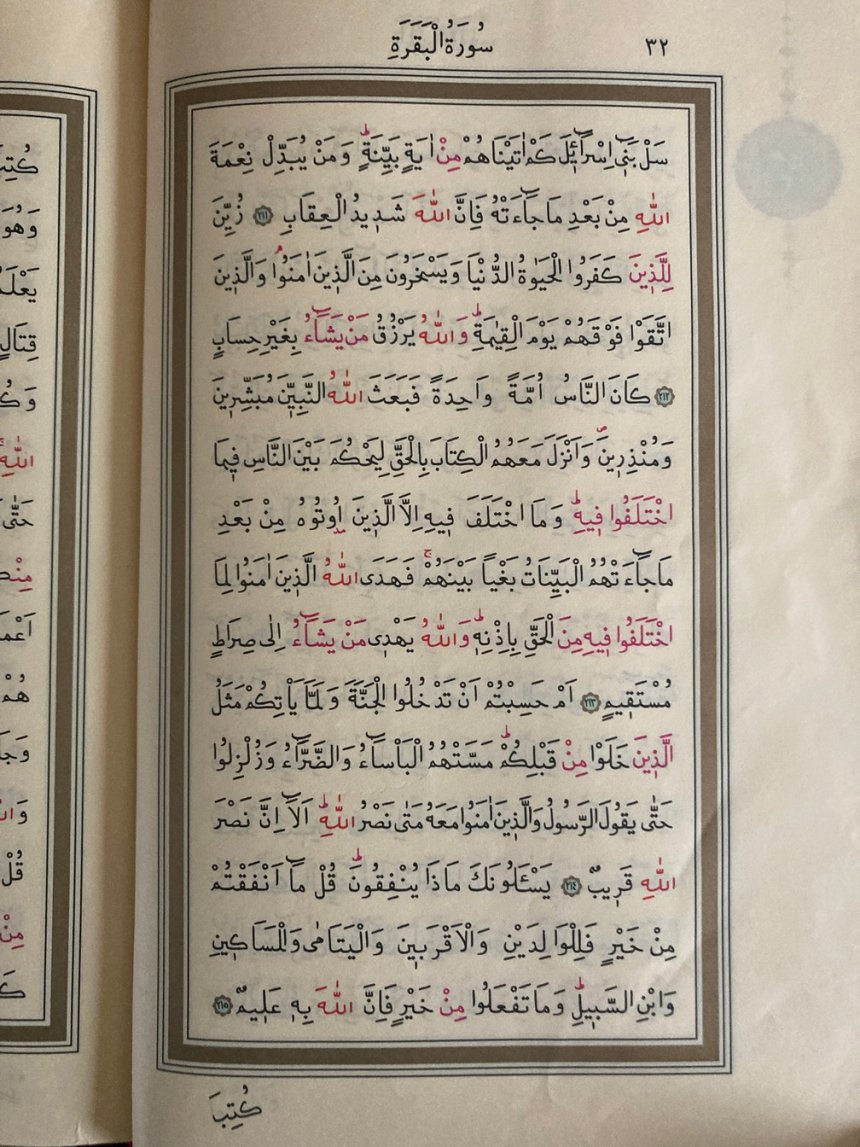 ٣٢
سُورَةُ الْبَقَرَةِ
سَلْ بَنٖٓي اِسْرَٓائٖلَ كَمْ اٰتَيْنَاهُمْ مِنْ اٰيَةٍ بَيِّنَةٍؕ وَمَنْ يُبَدِّلْ نِعْمَةَ
اللّٰهِ مِنْ بَعْدِ مَا جَٓاءَتْهُ فَاِنَّ اللّٰهَ شَدٖيدُ الْعِقَابِ ﴿٢١١﴾ زُيِّنَ
لِلَّذٖينَ كَفَرُوا الْحَيٰوةُ الدُّنْيَا وَيَسْخَرُونَ مِنَ الَّذٖينَ اٰمَنُواۘ وَالَّذٖينَ
اتَّقَوْا فَوْقَهُمْ يَوْمَ الْقِيٰمَةِؕ وَاللّٰهُ يَرْزُقُ مَنْ يَشَٓاءُ بِغَيْرِ حِسَابٍ
﴿٢١٢﴾ كَانَ النَّاسُ اُمَّةً وَاحِدَةً فَبَعَثَ اللّٰهُ النَّبِيّٖنَ مُبَشِّرٖينَ
وَمُنْذِرٖينَ وَاَنْزَلَ مَعَهُمُ الْكِتَابَ بِالْحَقِّ لِيَحْكُمَ بَيْنَ النَّاسِ فٖيمَا
اخْتَلَفُوا فٖيهِؕ وَمَا اخْتَلَفَ فٖيهِ اِلَّا الَّذٖينَ اُوتُوهُ مِنْ بَعْدِ
مَا جَٓاءَتْهُمُ الْبَيِّنَاتُ بَغْياً بَيْنَهُمْۚ فَهَدَى اللّٰهُ الَّذٖينَ اٰمَنُوا لِمَا
اخْتَلَفُوا فٖيهِ مِنَ الْحَقِّ بِاِذْنِهٖؕ وَاللّٰهُ يَهْدٖي مَنْ يَشَٓاءُ اِلٰى صِرَاطٍ
مُسْتَقٖيمٍ ﴿٢١٣﴾ اَمْ حَسِبْتُمْ اَنْ تَدْخُلُوا الْجَنَّةَ وَلَمَّا يَأْتِكُمْ مَثَلُ
الَّذٖينَ خَلَوْا مِنْ قَبْلِكُمْؕ مَسَّتْهُمُ الْبَأْسَٓاءُ وَالضَّرَّٓاءُ وَزُلْزِلُوا
حَتّٰى يَقُولَ الرَّسُولُ وَالَّذٖينَ اٰمَنُوا مَعَهُ مَتٰى نَصْرُ اللّٰهِؕ اَلَٓا اِنَّ نَصْرَ
اللّٰهِ قَرٖيبٌ ﴿٢١٤﴾ يَسْـَٔلُونَكَ مَاذَا يُنْفِقُونَؕ قُلْ مَٓا اَنْفَقْتُمْ
مِنْ خَيْرٍ فَلِلْوَالِدَيْنِ وَالْاَقْرَبٖينَ وَالْيَتَامٰى وَالْمَسَاكٖينِ
وَابْنِ السَّبٖيلِؕ وَمَا تَفْعَلُوا مِنْ خَيْرٍ فَاِنَّ اللّٰهَ بِهٖ عَلٖيمٌ ﴿٢١٥﴾
كُتِبَ